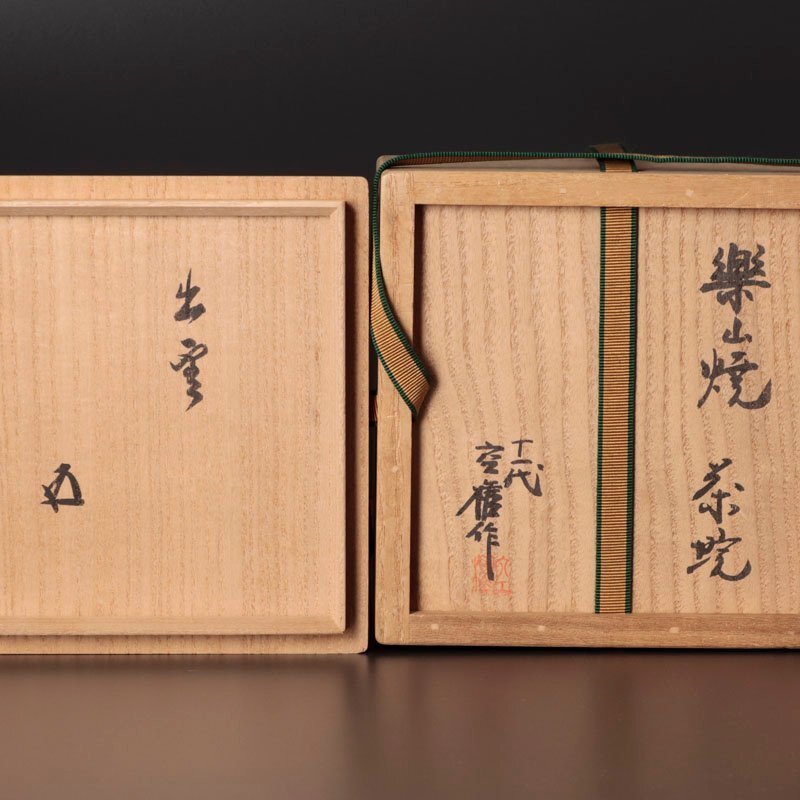 樂山焼 茶埦
十一代
空權作
出雲